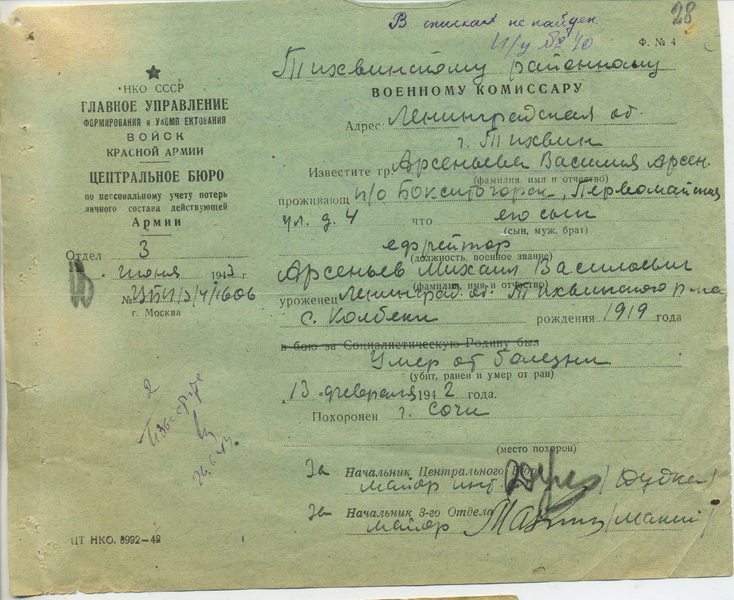 В списках не найден.
28
Ф. № 4
НКО СССР
ГЛАВНОЕ УПРАВЛЕНИЕ
ФОРМИРОВАНИЯ и УКОМПЛЕКТОВАНИЯ
ВОЙСК
КРАСНОЙ АРМИИ
ЦЕНТРАЛЬНОЕ БЮРО
по персональному учету потерь
личного состава действующей
Армии
Отдел 3
июня 1942 г.
г. Москва
Тихвинскому районному
ВОЕННОМУ КОМИССАРУ
Адрес Ленинградская об.
г. Тихвин
Известите гр. Арсеньева Василия Арсен.
(фамилия, имя и отчество)
проживающ п/о Бокситогорск, Первомайская
ул. д. 4 что его сын
(сын, муж, брат)
ефрейтор
(должность, военное звание)
Арсеньев Михаил Васильевич
(фамилия, имя и отчество)
уроженец Ленинград. об. Тихвинского р-на
с. Колбеки рождения 1919 года
в бою за Социалистическую Родину был
Умер от болезни
(убит, ранен и умер от ран)
13 февраля 1942 года.
Похоронен г. Сочи
(место похорон)
За Начальник Центрального Бюро
майор инт. (Дудка)
За Начальник 3-го Отдела
майор
2
26.6.42.
ЦТ НКО. 3992—42